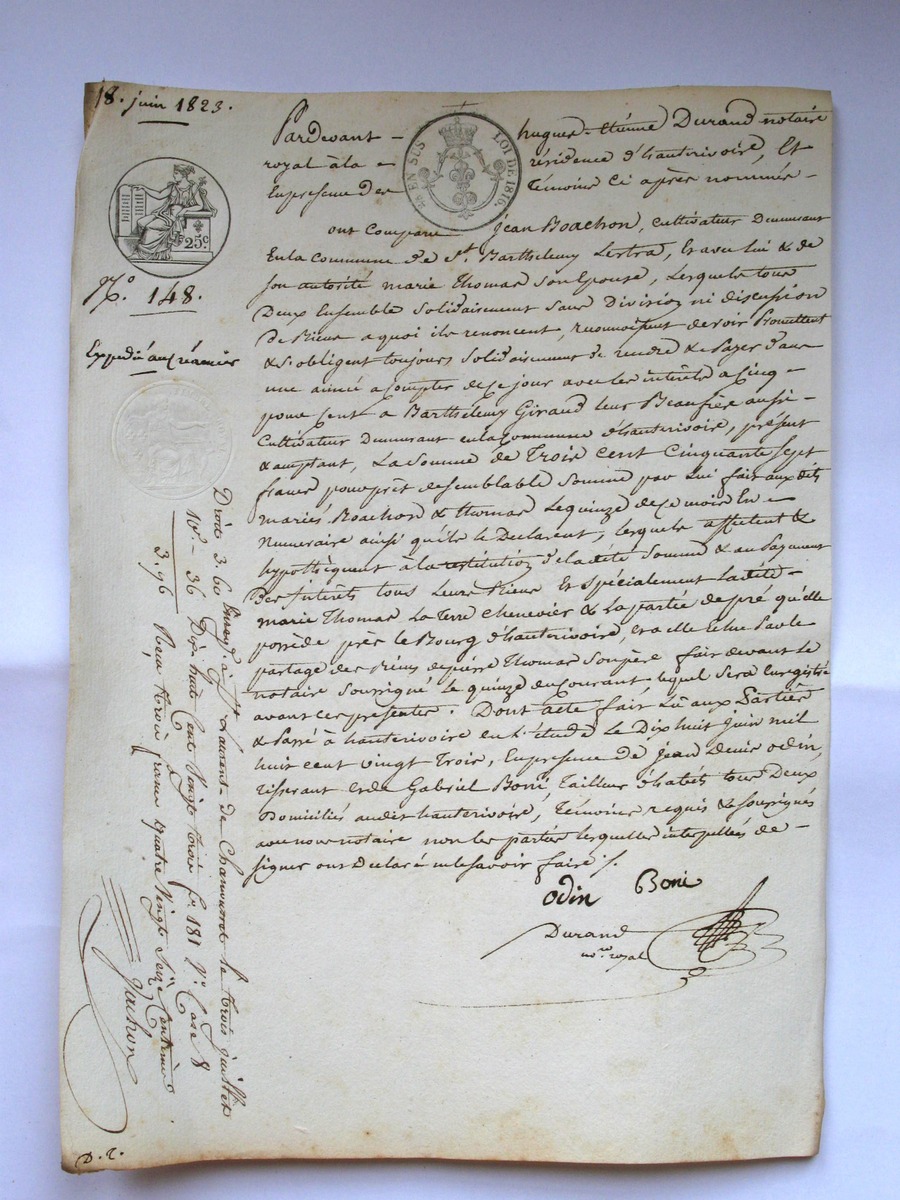 18. juin 1823.
Pardevant - hugues-étienne Durand notaire
royal à la - résidence d'hauterivoire, Et
En presence des Témoins Ci après nommés -
EN SUS LOI DE 1816.
25c
ont Comparu Jean Boachon, cultivateur Demeurant
En la commune de St. Barthelemy Lestra, Et avec lui & de
son autorité marie Thomas son Epouse, Lesquels tous
Deux Ensemble solidairement sans Division ni discussion
De Biens a quoi ils renoncent, reconnoissent devoir Promettent
& s'obligent toujours solidairement de rendre & Payer dans
une année a Compter de ce jour avec les intérêts a Cinq -
pour Cent a Barthelemy Giraud leur Beaufrère aussi -
Cultivateur Demeurant en la Commune d'hauterivoire, présent
& acceptant, La somme de Trois Cent Cinquante sept
francs pour prêt de semblable somme par lui fait aux dits
mariés Boachon & thomas Le quinze de Ce mois En -
Numeraire ainsi qu'ils le Declarent, lesquels affectent &
hypothèquent à la restitution de la dite somme & au Payement
Des Intérêts tous Leurs Biens Et spécialement La dite -
marie Thomas La Terre Chenevier & La partie de pré qu'elle
possède près le Bourg d'hauterivoire, a elle échue Par le
partage des Biens de pierre Thomas son père fait devant le
notaire soussigné le quinze du Courant, lequel sera Enregistré
avant ces presentes. Dont acte fait Lû aux Parties
& Passé à hauterivoire en l'étude le Dix huit juin mil
huit cent vingt Trois, En presence de jean Denis odin,
tisserant et de Gabriel Boni, Tailleur d'habits tous Deux
Domiciliés au dit hauterivoire, Témoins requis & soussignés
avec nous notaire non les parties lesquelles interpellées de -
signer ont Declaré ne le savoir faire /.
odin Boni
Durand
nore royal
No. 148.
Expedié au Créancier
Droits 3. 60 Enregé à St Laurent de Chamousset le trois juillet
10e. - 36 Dix huit Cent Vingt trois fo. 181 Vo. Case 8
3. 96 Reçu trois francs quatre Vingt Seize Centimes
Gachon
D. T.